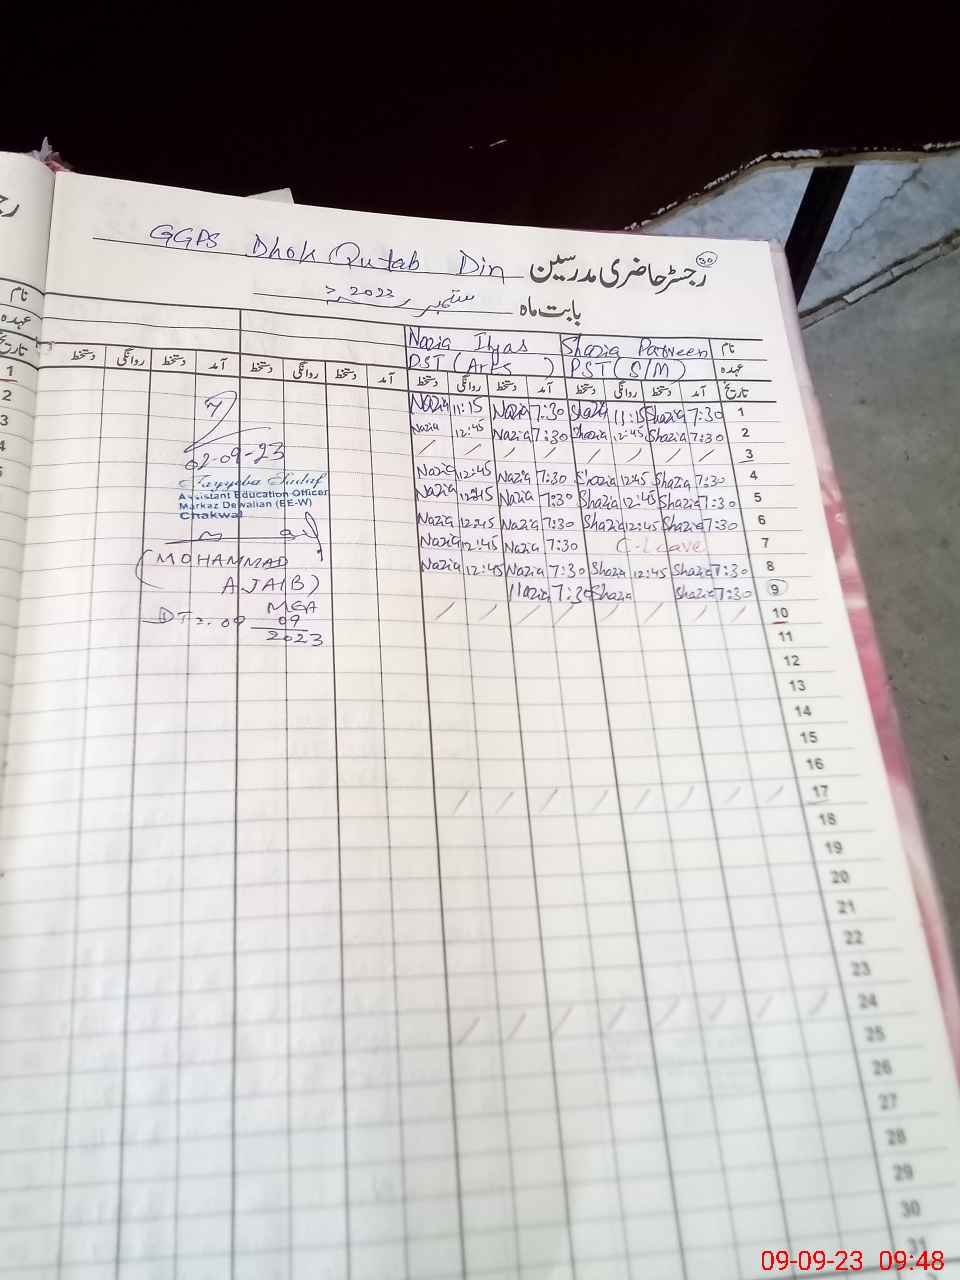 GGPS Dhok Qutab Din رجسٹر حاضری مدرسین 30
بابت ماہ ستمبر 2023ء
نام Shazia Parveen Nazia Ilyas
عہدہ PST (S/M) PST (Arts)
تاریخ آمد دستخط روانگی دستخط آمد دستخط روانگی دستخط آمد دستخط روانگی دستخط آمد دستخط روانگی دستخط
1 7:30 Shazia 11:15 Shazia 7:30 Nazia 11:15 Nazia
2 7:30 Shazia 12:45 Shazia 7:30 Nazia 12:45 Nazia
3 / / / / / / / /
4 7:30 Shazia 12:45 Shazia 7:30 Nazia 12:45 Nazia
5 7:30 Shazia 12:45 Shazia 7:30 Nazia 12:45 Nazia
6 7:30 Shazia 12:45 Shazia 7:30 Nazia 12:45 Nazia
7 C-Leave 7:30 Nazia 12:45 Nazia
8 7:30 Shazia 12:45 Shazia 7:30 Nazia 12:45 Nazia
9 7:30 Shazia Shazia 7:30 Nazia
10 / / / / / / / /
11
12
13
14
15
16
17 / / / / / / / /
18
19
20
21
22
23
24 / / / / / / / /
25
26
27
28
29
30
31
02-09-23
Tayyeba Sadaf
Assistant Education Officer
Markaz Dewalian (EE-W)
Chakwal
(MOHAMMAD
AJAIB)
MEA
DT 2. 09 09
2023
نام
عہدہ
تاریخ
1
2
3
4
5
09-09-23 09:48